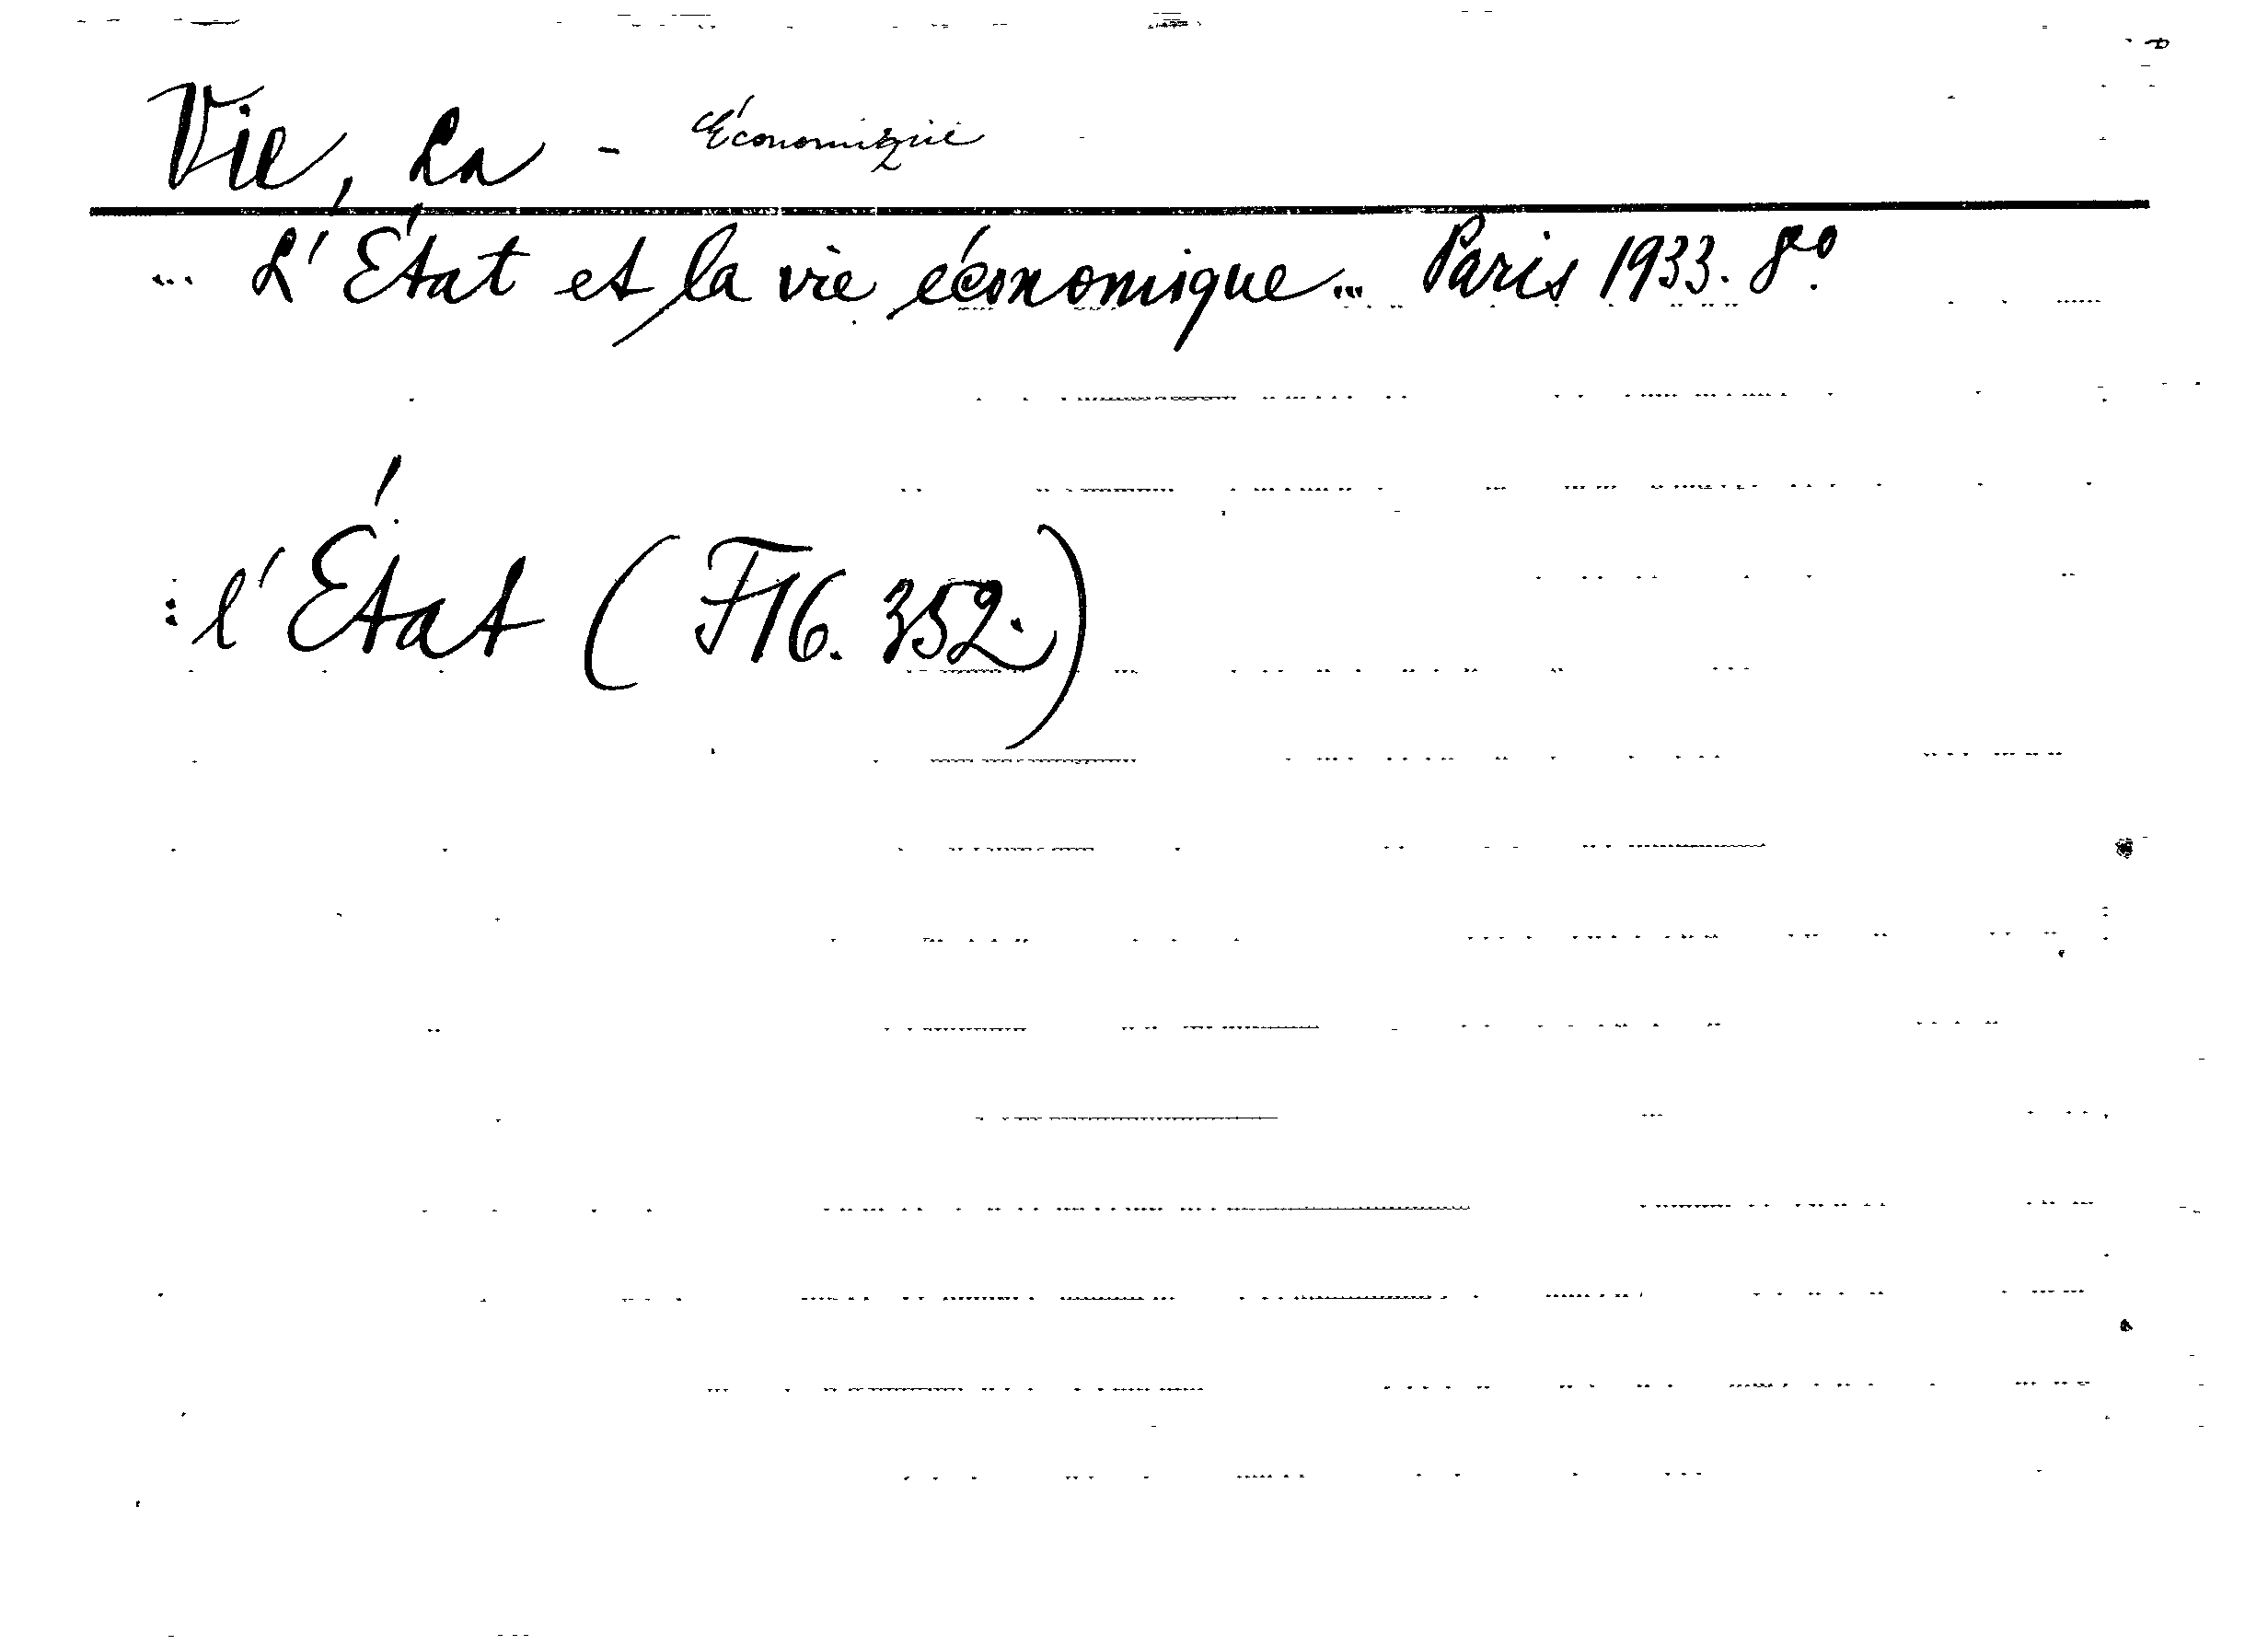 Vie, La - Économique
... L'État et la vie économique... Paris 1933. 8º.
: l'État (F16. 352.)